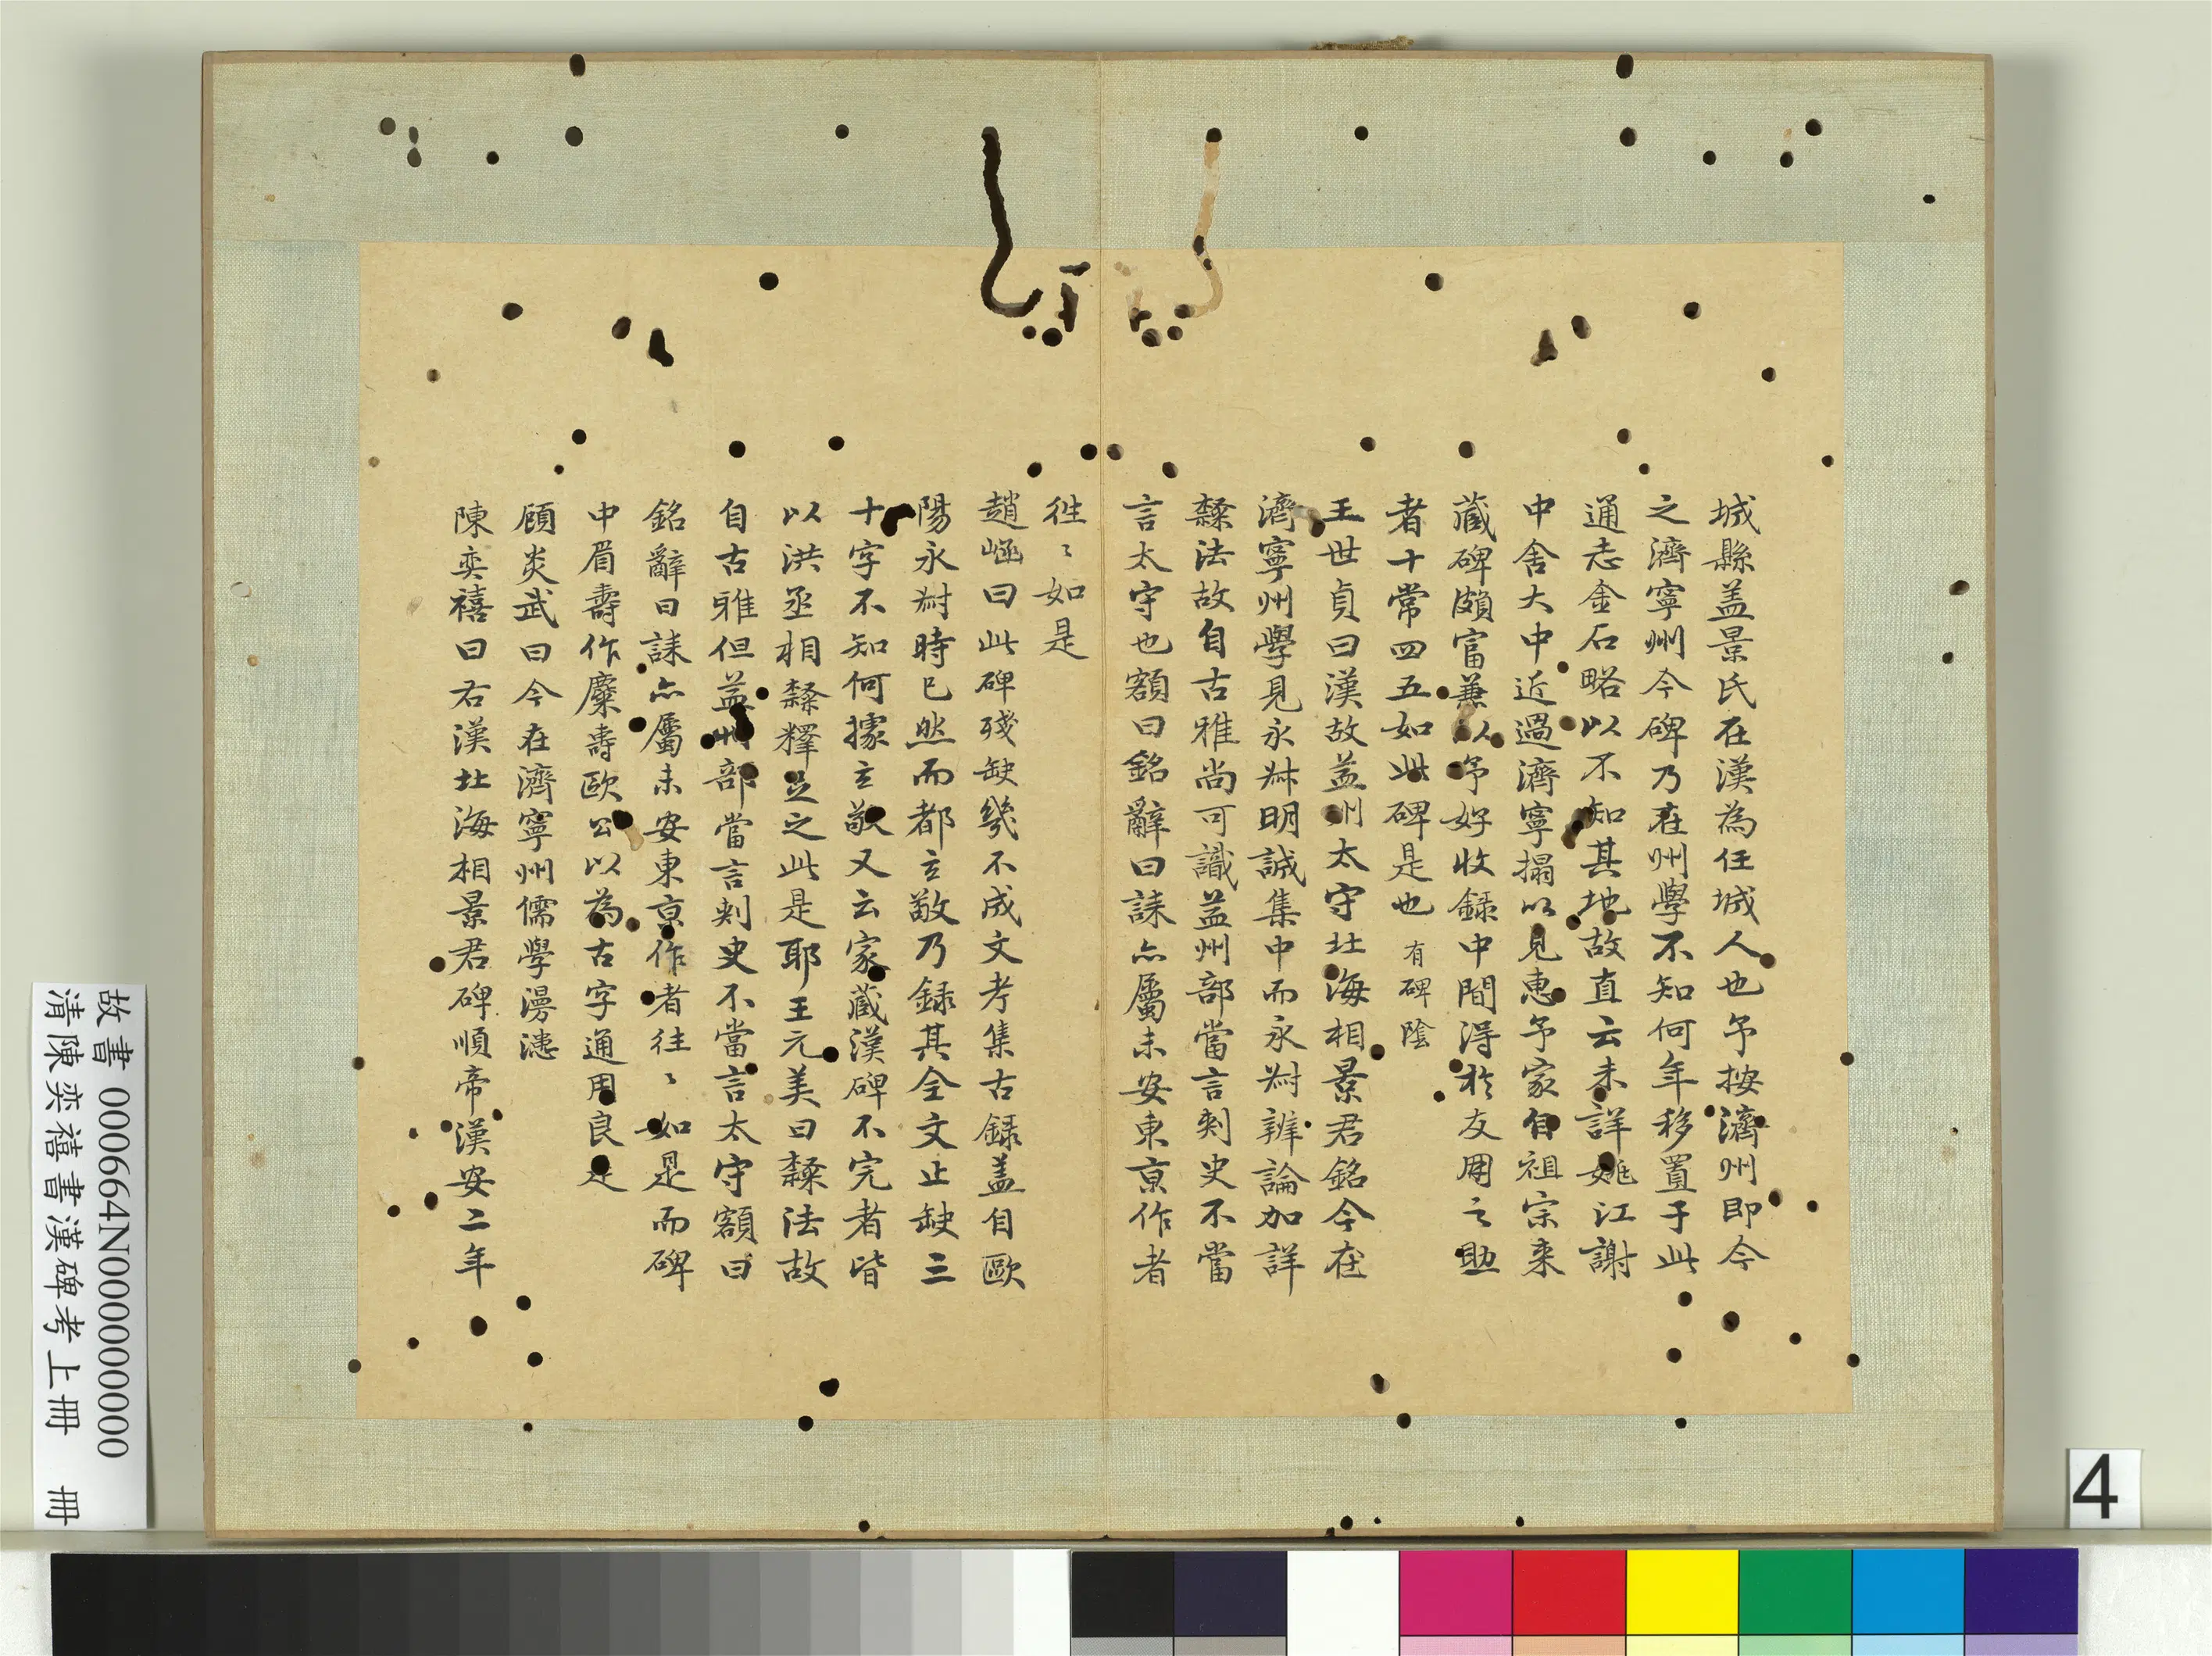 城縣盖景氏在漢為任城人也予按濟州即今
之濟寧州今碑乃在州學不知何年移置于此
通志金石略以不知其地故直云未詳姚江謝
中舍大中近過濟寧搨以見惠予家自祖宗来
藏碑頗富兼以予好收録中間得於友朋之助
者十常四五如此碑是也有碑陰
王世貞曰漢故益州太守北海相景君銘今在
濟寧州學見永叔明誠集中而永叔辨論加詳
隸法故自古雅尚可識益州部當言刺史不當
言太守也額曰銘辭曰誄亦屬未安東京作者
往〻如是
趙崡曰此碑殘缺幾不成文考集古録盖自歐
陽永叔時已然而都玄敬乃録其全文止缺三
十字不知何據玄敬又云家藏漢碑不完者皆
以洪丞相隸釋足之此是耶王元美曰隸法故
自古雅但益州部當言刺史不當言太守額曰
銘辭曰誄亦屬未安東京作者往〻如是而碑
中眉壽作麋壽歐公以為古字通用良是
顧炎武曰今在濟寧州儒學漫漶
陳奕禧曰右漢北海相景君碑順帝漢安二年
故書 000664N000000000
清陳奕禧書漢碑考上冊 冊
4